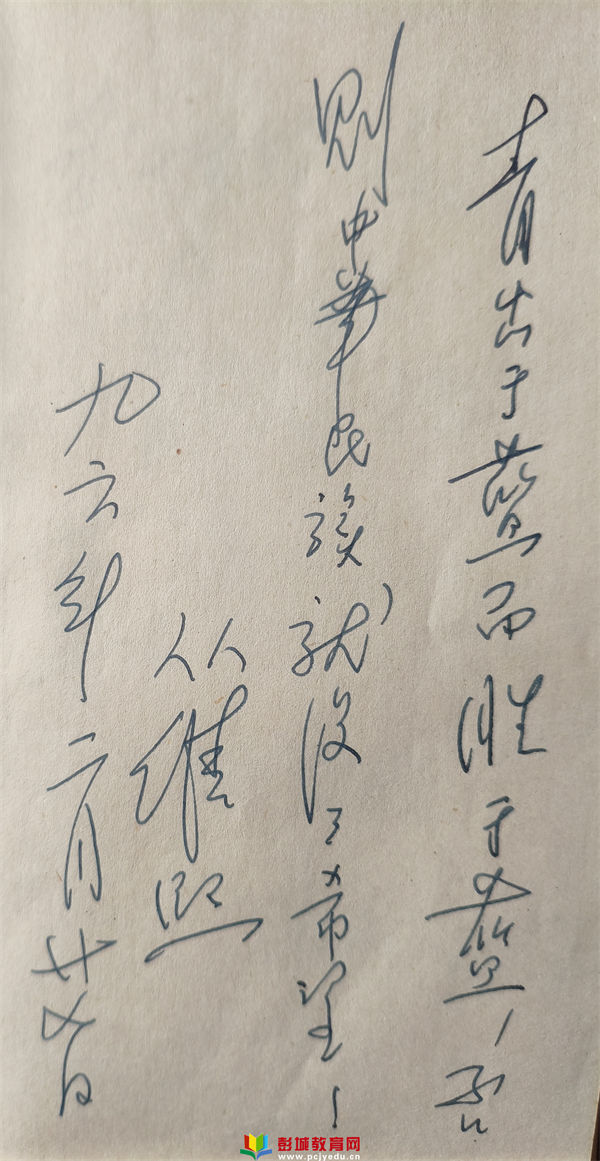 青出于蓝而胜于蓝，否
则中华民族就没了希望！
从维熙
九六年二月廿
彭城教育网
www.pcjyedu.cn